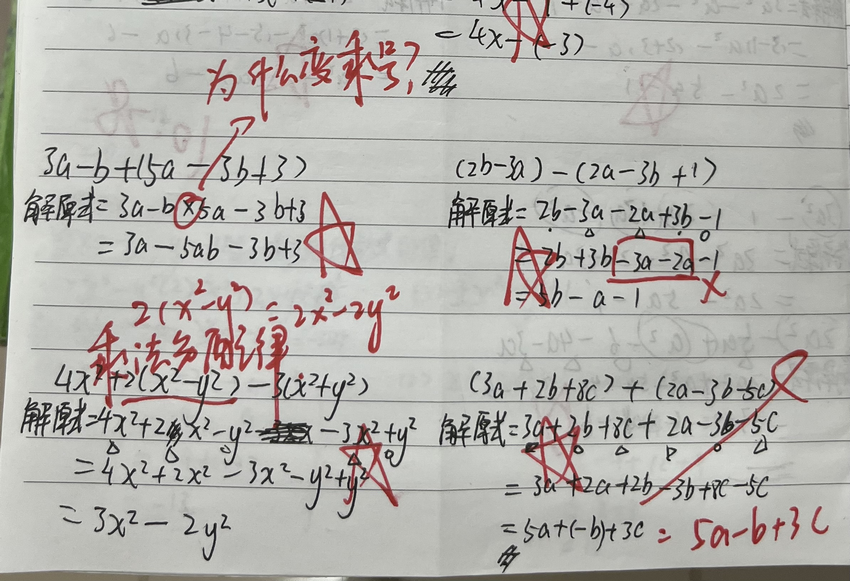 4x + 1 + (-4)
= 4x - (-3)
为什么变乘号?
3a-b+(5a-3b+3)
解原式=3a-b×5a-3b+3
=3a-5ab-3b+3
(2b-3a)-(2a-3b+1)
解原式=2b-3a-2a+3b-1
=2b+3b-3a-2a-1
=5b-a-1
2(x²-y²)=2x²-2y²
乘法分配律
4x²+2(x²-y²)-3(x²+y²)
解原式=4x²+2x²-y²-3x²+y²
=4x²+2x²-3x²-y²+y²
=3x²-2y²
(3a+2b+8c)+(2a-3b-5c)
解原式=3a+2b+8c+2a-3b-5c
=3a+2a+2b-3b+8c-5c
=5a+(-b)+3c=5a-b+3c